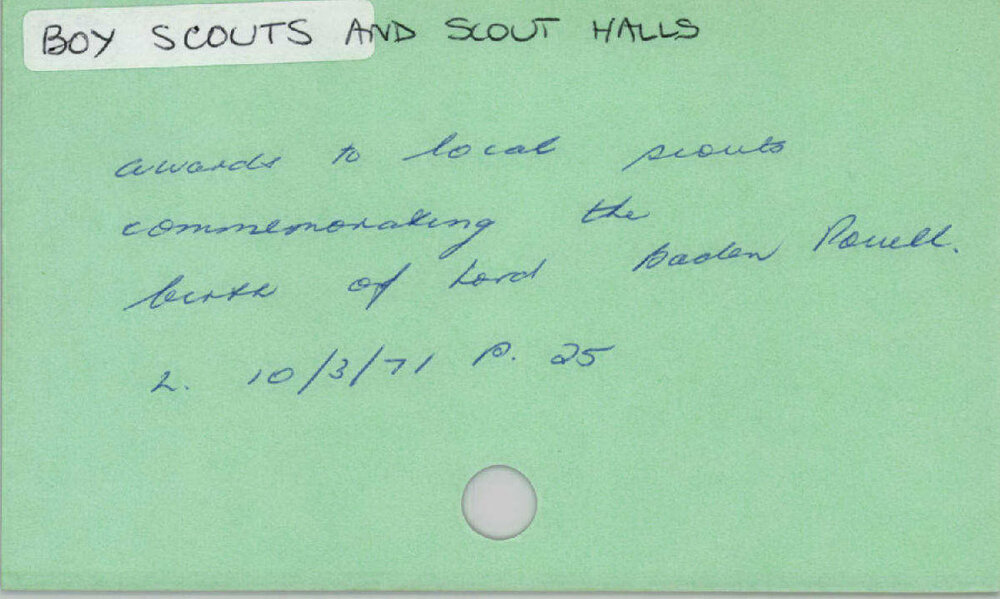 BOY SCOUTS AND SCOUT HALLS
awards to local scouts
commemorating the
birth of Lord Baden Powell.
L. 10/3/71 P. 25